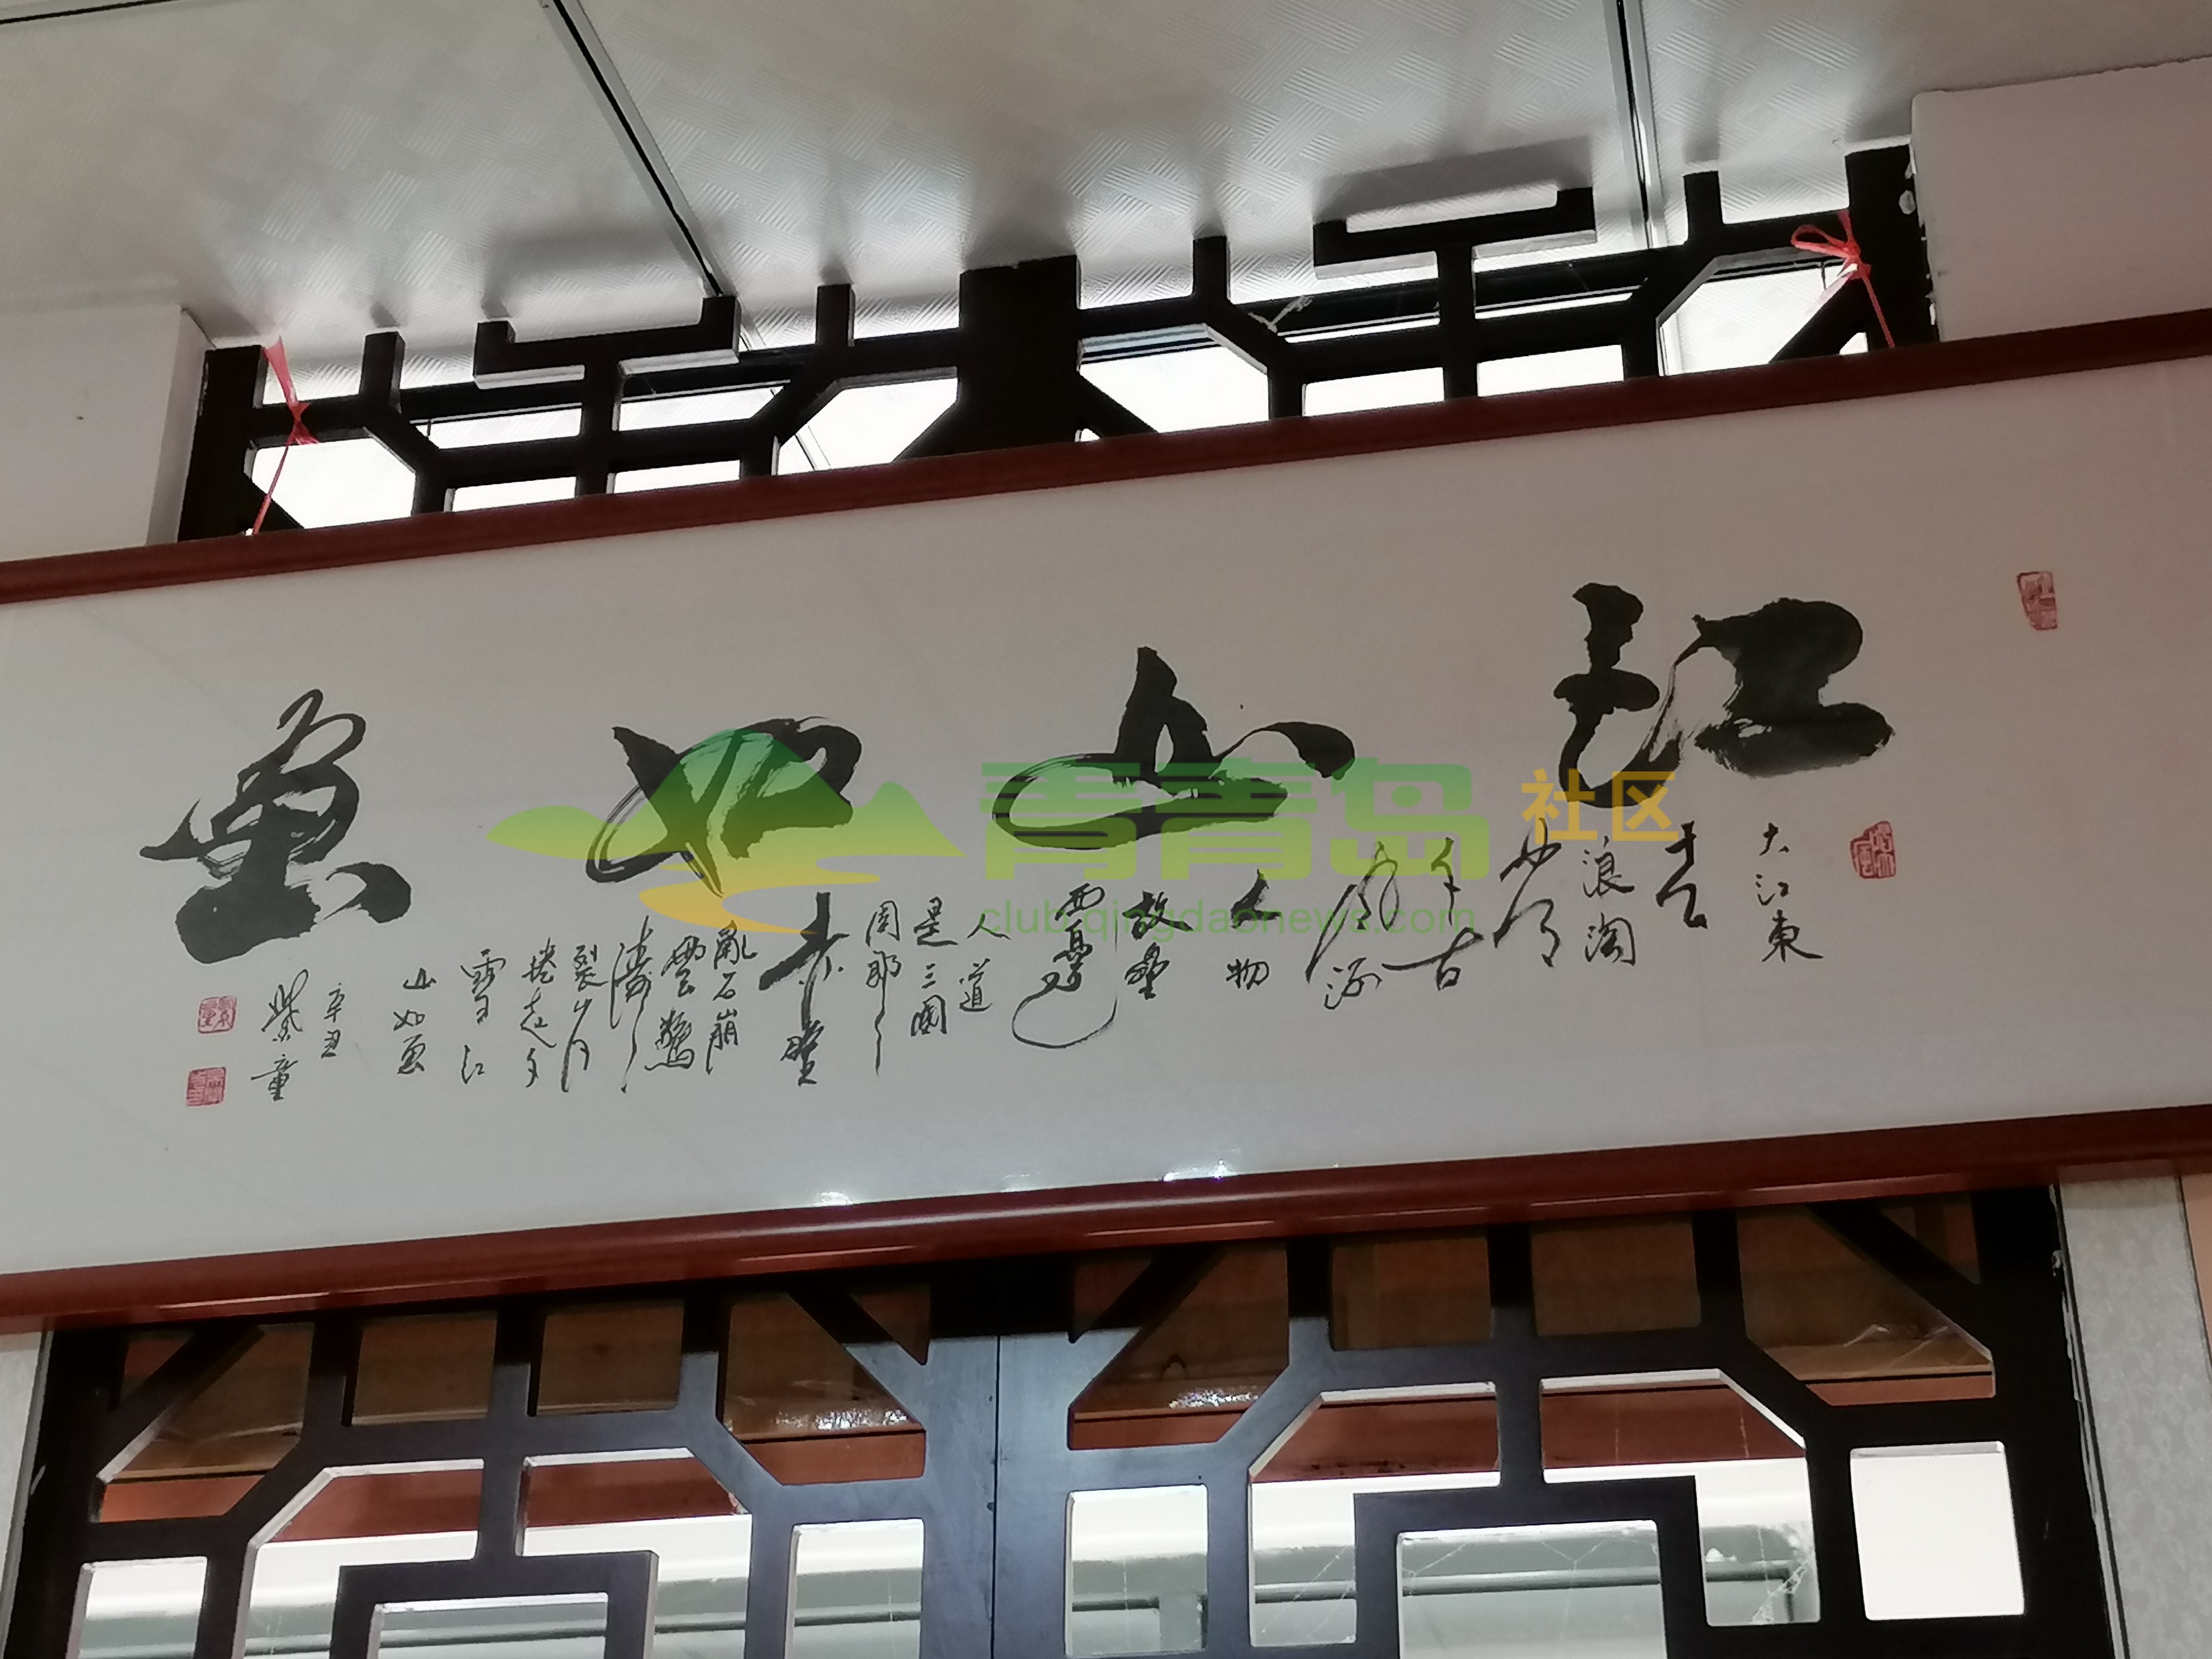 江山如画
大江東
去
浪淘
尽
千古
風流
人物
故壘
西邊
人道
是三國
周郎
赤壁
亂石崩
雲驚
濤
裂岸
捲起千
雪江
山如画
辛丑
紫童
青青岛社区
club.qingdaonews.com